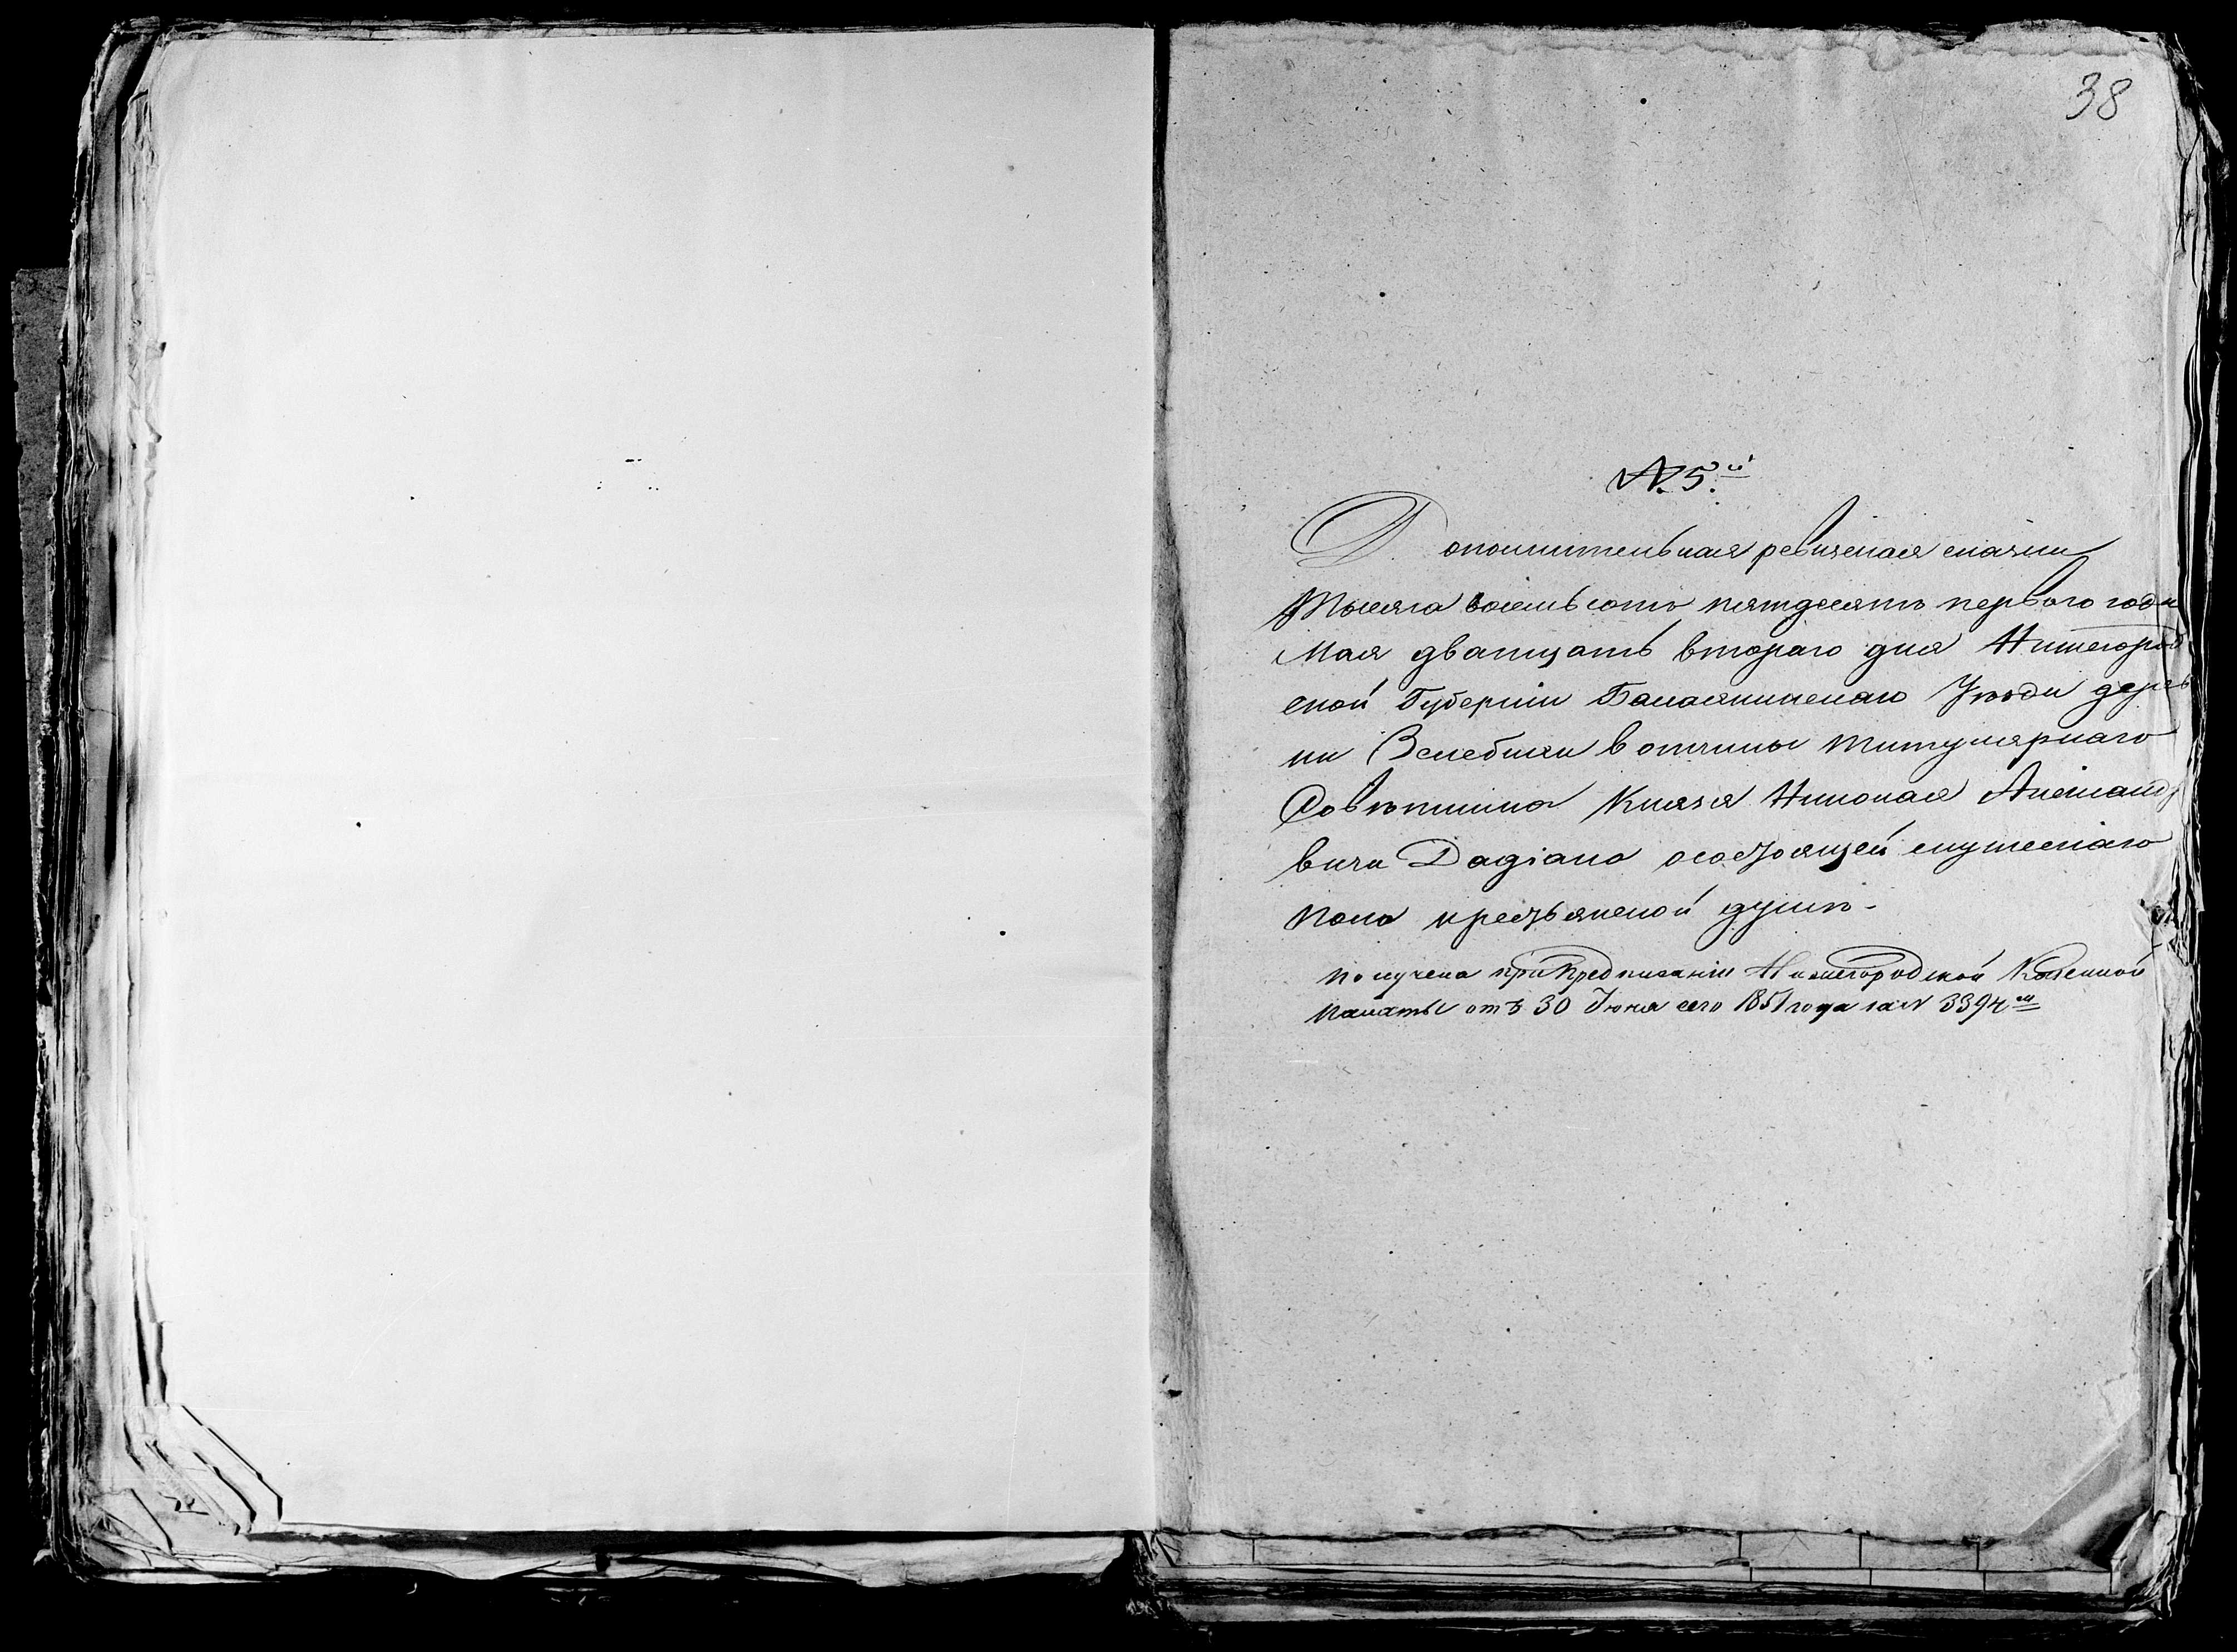 38
№ 5.й
Дополнительная ревизская сказка
Тысяча восемьсотъ пятдесятъ перваго года
Мая дватцать втораго дня Нижегород
ской Губерніи Балахнинскаго Уѣзда дерев
ни вотчины титулярнаго
Совѣтника Князя Николая Александр
вича Дадіана осостоящей мужескаго
пола крестьянской душѣ.
получена при предписаніи Нижегородской Казенной
палаты отъ 30 Июня сего 1851 года за № 3394м